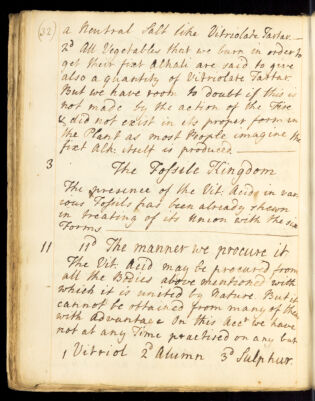 (32) a Neutral Salt like Vitriolate Tartar.—
2d All Vegetables that we burn in order to
get their fixt Alkali are said to give
also a quantity of Vitriolate Tartar
But we have room to doubt if this is
not made by the action of the Fire
& did not exist in its proper form in
the Plant as most People imagine the
fixt Alk: itself is produced
3 The Fossile Kingdom
The presence of the Vit: Acid in var
ious Fossils has been already shewn
in treating of its Union with the six
Forms
11 1st The manner we procure it
The Vit. Acid may be procured from
all the Bodies above mentioned with
which it is united by Nature. But it
cannot be obtained from many of them
with Advantage On this Acct we have
not at any Time practised on any but
1 Vitriol 2d Alumn 3d Sulphur